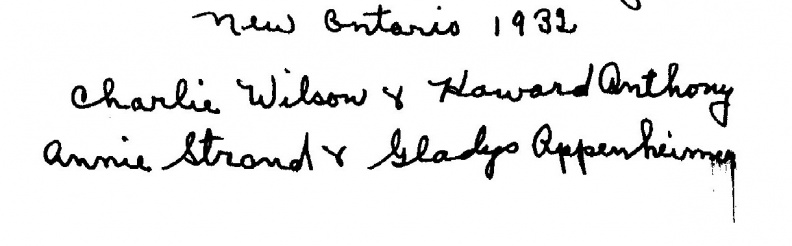 New Ontario 1932
Charlie Wilson & Howard Anthony
Annie Strand & Gladys Appenheimer